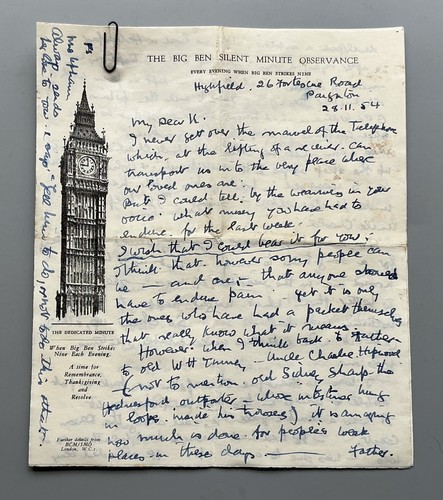 THE BIG BEN SILENT MINUTE OBSERVANCE
EVERY EVENING WHEN BIG BEN STRIKES NINE
Highfield. 26 Fortescue Road
Paignton
28.11.54
My dear K.
I never get over the marvel of the Telephone
which, at the lifting of a receiver. Can
transport us into the very place where
our loved ones are.
But I could tell, by the weariness in your
voice. what misery you have had to
endure. for the last week
I wish that I could bear it for you.
I think that however sorry people can
be — and are; — that anyone should
have to endure pain — yet it is only
the ones who have had a packet themselves
that really know what it means.
However. when I think back to Father
to old W H Turney — Uncle Charlie Hopwood
(not to mention old Sidney Sharp. the
outporter — whose intestines hung
in loops inside his trousers) it is amazing
how much is done for people's weak
places in these days — Father.
PS
Mrs
Always sends
her love to you
THE DEDICATED MINUTE
When Big Ben Strikes
Nine Each Evening.
A time for
Remembrance,
Thanksgiving
and
Resolve
Further details from
BCM/SMO
London, W.C.1